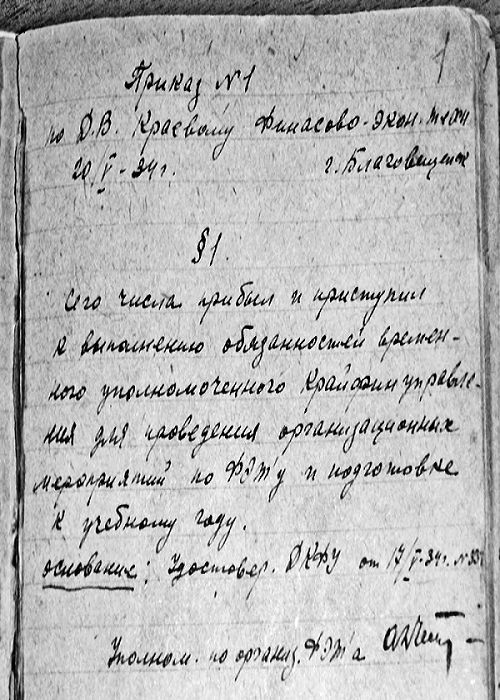 1
Приказ № 1
по Д.В. Краевому Финасово-Экон. Тех
20/V-34 г. г. Благовещенск
§ 1.
Сего числа прибыл и приступил
к выполнению обязанностей времен-
ного уполномоченного Крайфинуправле-
ния для проведения организационных
мероприятий по ФЭТу и подготовке
к учебному году.
Основание: Удостовер. ДКФУ от 17/V-34г. №
Уполном. по организ. ФЭТа